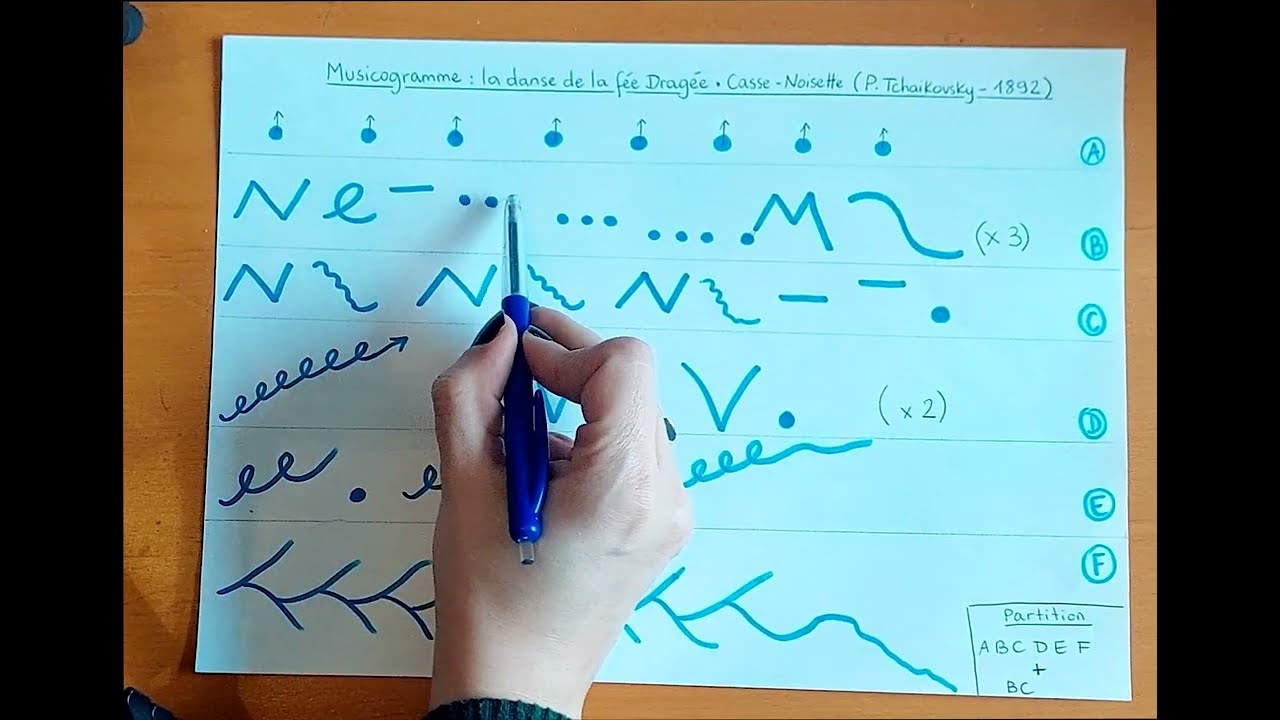 Musicogramme : la danse de la fée Dragée • Casse-Noisette (P. Tchaikovsky - 1892)
A
(x 3)
B
C
(x 2)
D
E
F
Partition
A B C D E F
+
BC